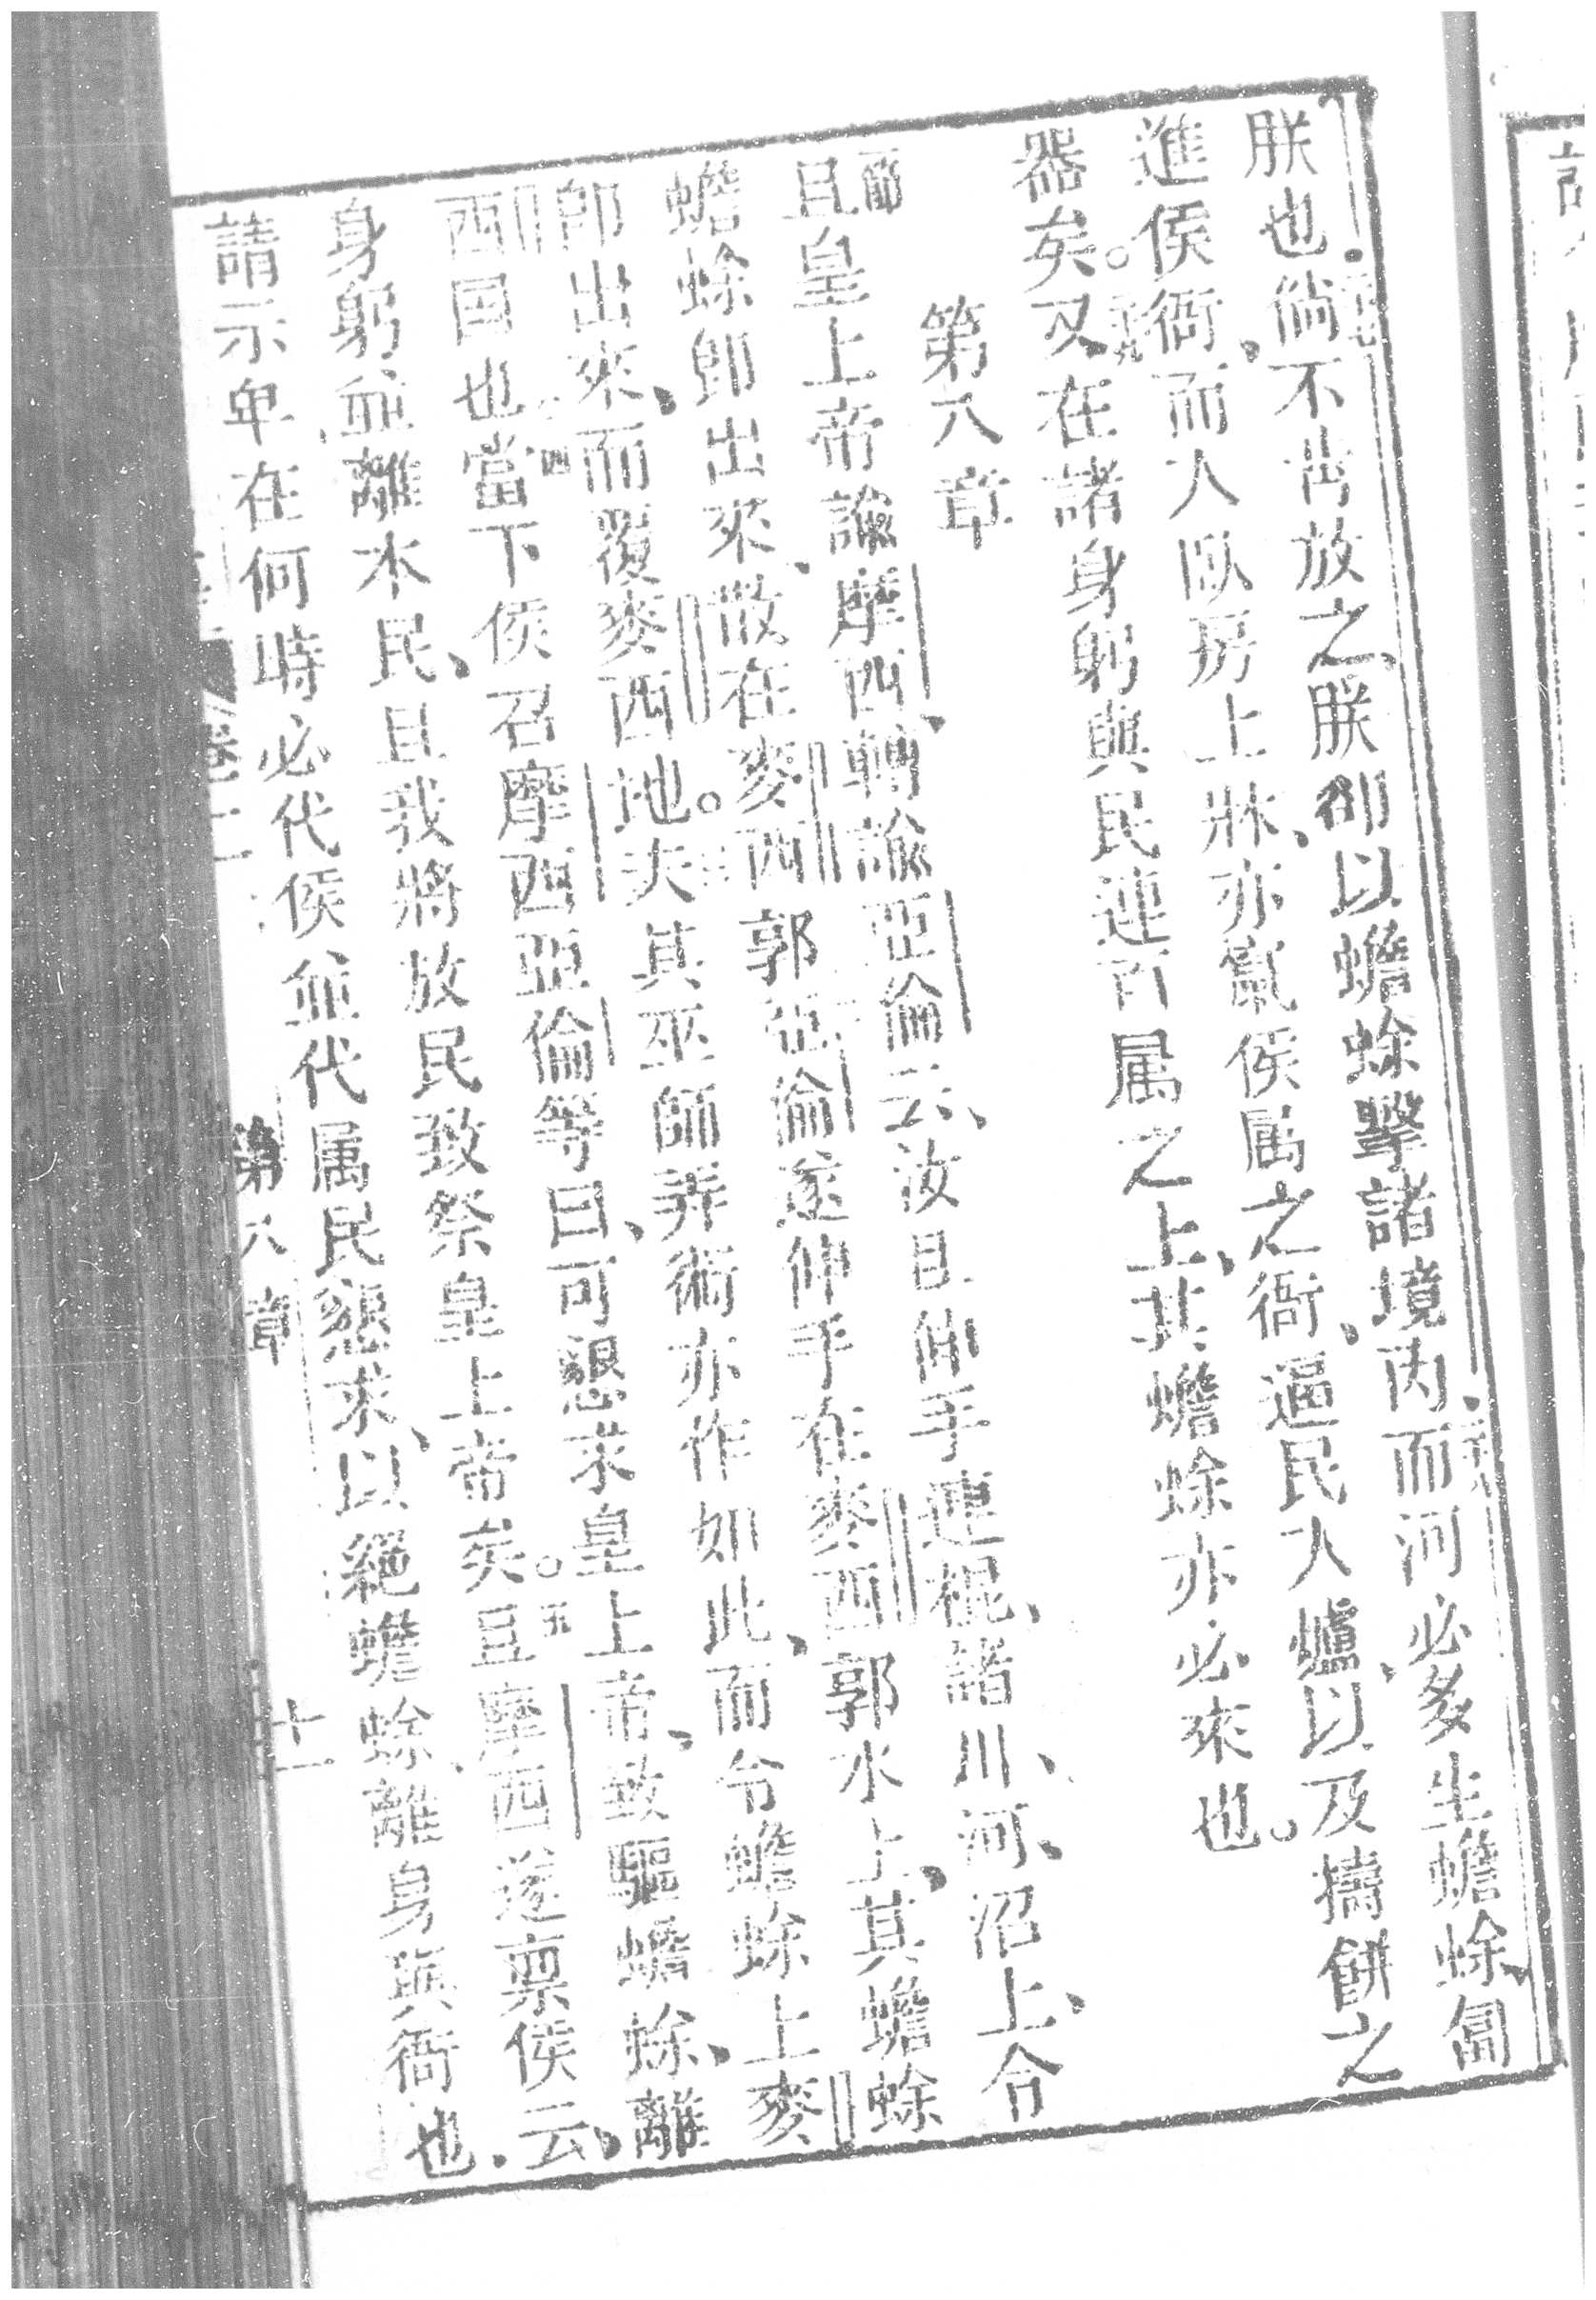 朕也倘不肯放之、朕卽以蟾蜍擊諸境內而河必多生蟾蜍匐
進侯衙、而入臥房上牀、亦竄侯属之衙、逼民人爐、以及擣餅之
器矣。又在諸身躬與民連百属之上、其蟾蜍亦必來也。
第八章
一節且皇上帝諭摩西、轉諭亞倫云、汝且伸手連棍、諸川、河、沼上、令
蟾蜍卽出來、散在麥西郭亞倫遂伸手在麥西郭水上、其蟾蜍
卽出來、而覆麥西地。夫其巫師弄術亦作如此、而令蟾蜍上麥
西国也當下侯召摩西亞倫等曰、可懇求皇上帝、致驅蟾蜍、離
身躬並離本民、且我將放民致祭皇上帝矣。且摩西遂禀侯云、
請示卑在何時必代侯並代属民懇求、以絕蟾蜍離身與衙也、
卷二 第八章 十一